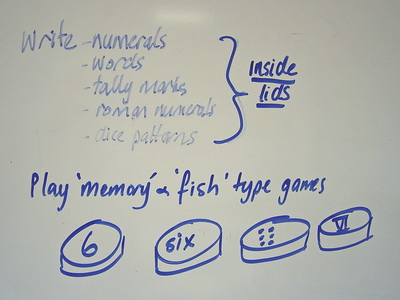 Write - numerals
- words
- tally marks
- roman numerals
- dice patterns
inside
lids
Play 'memory' & 'fish' type games
6 six VI